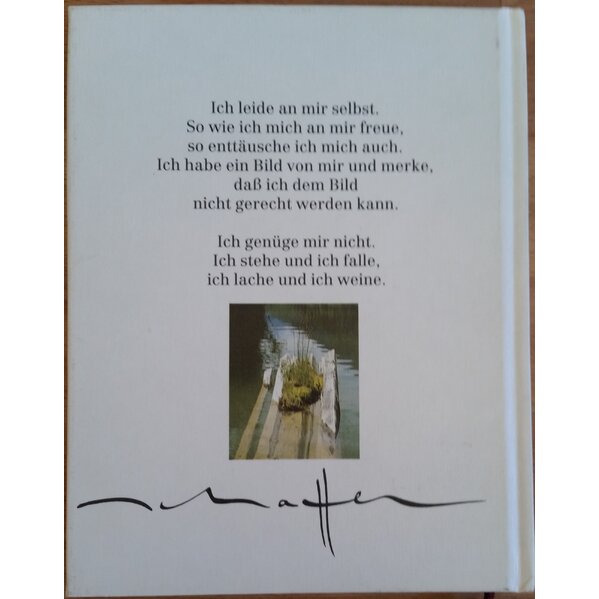 Ich leide an mir selbst.
So wie ich mich an mir freue,
so enttäusche ich mich auch.
Ich habe ein Bild von mir und merke,
daß ich dem Bild
nicht gerecht werden kann.
Ich genüge mir nicht.
Ich stehe und ich falle,
ich lache und ich weine.